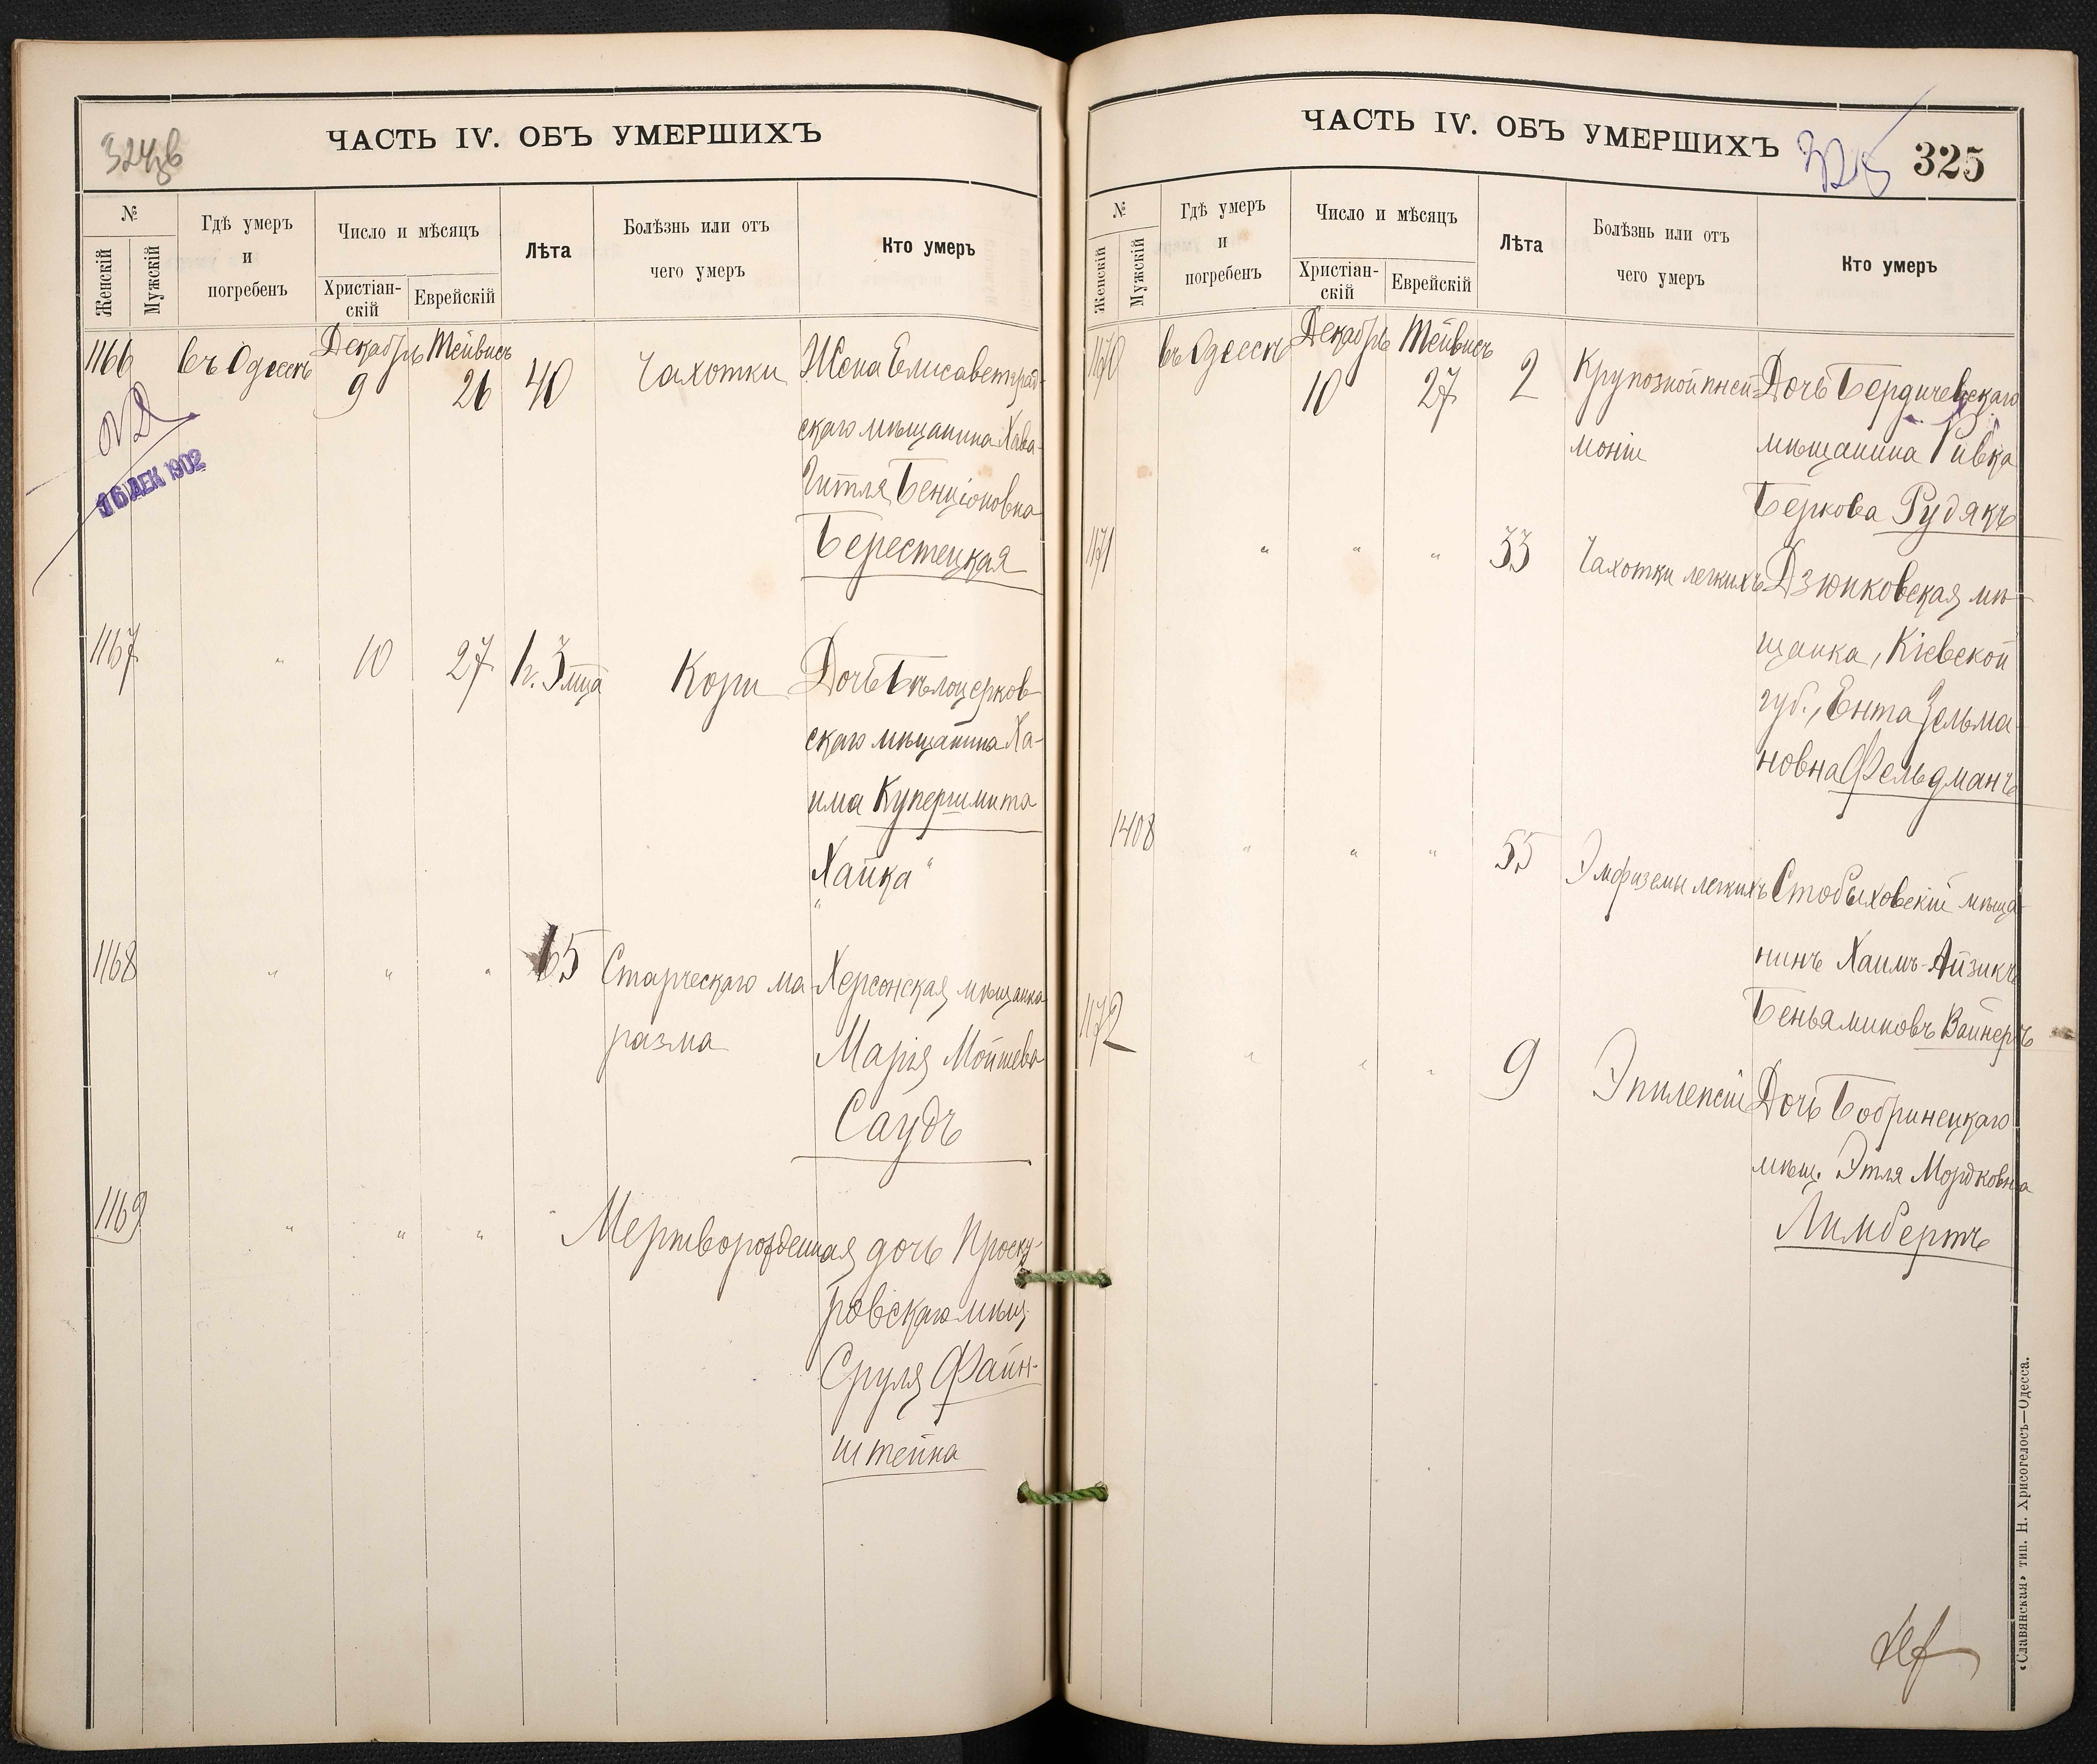 324 об
ЧАСТЬ IV. ОБЪ УМЕРШИХЪ
№
Женскій
Мужскій
Гдѣ умеръ
и
погребенъ
Число и мѣсяцъ
Христіан-
скій
Еврейскій
Лѣта
Болѣзнь или отъ
чего умеръ
Кто умеръ
1166 въ Одессѣ Декабрь 9 Тейвисъ 26 40 Чахотки Жена Елисаветград-
скаго мѣщанина Хава-
Гитля Бенціоновна
Берестецкая
16 ДЕК 1902
1167 " 10 27 1 г. 3 мца Кори Дочь Бѣлоцерков-
скаго мѣщанина Ха-
има Купершмита
"Хайка"
1168 " " " 65 Старческаго ма- Херсонская мѣщанка
разма Марія Мойшева
Саудъ
1169 " " " " Мертворожденная дочь Проску-
ровскаго мѣщ.
Сруля Файн-
штейна
ЧАСТЬ IV. ОБЪ УМЕРШИХЪ
325
325
№
Женскій
Мужскій
Гдѣ умеръ
и
погребенъ
Число и мѣсяцъ
Христіан-
скій
Еврейскій
Лѣта
Болѣзнь или отъ
чего умеръ
Кто умеръ
1170 въ Одессѣ Декабрь 10 Тейвисъ 27 2 Крупозной пнев- Дочь Бердичевскаго
моніи мѣщанина Ривка
Беркова Рудякъ
1171 " " " 33 Чахотки легкихъ Дзюнковская мѣ-
щанка, Кіевской
губ., Ента Зельма-
новна Фельдманъ
1408 " " " 55 Эмфиземы легкихъ Стобыховскій мѣща-
нинъ Хаимъ-Айзикъ
Беньяминовъ Вайнеръ
1172 " " " 9 Эпилепсіи Дочь Бобринецкаго
мѣщ. Этля Мордковна
Лимбертъ
«Славянская» тип. Н. Хрисогелосъ—Одесса.